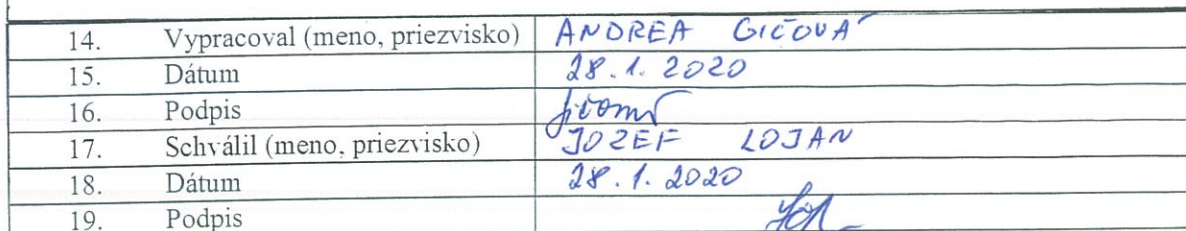 14. Vypracoval (meno, priezvisko) ANDREA GIČOVÁ
15. Dátum 28.1.2020
16. Podpis
17. Schválil (meno, priezvisko) JOZEF LOJAN
18. Dátum 28.1.2020
19. Podpis